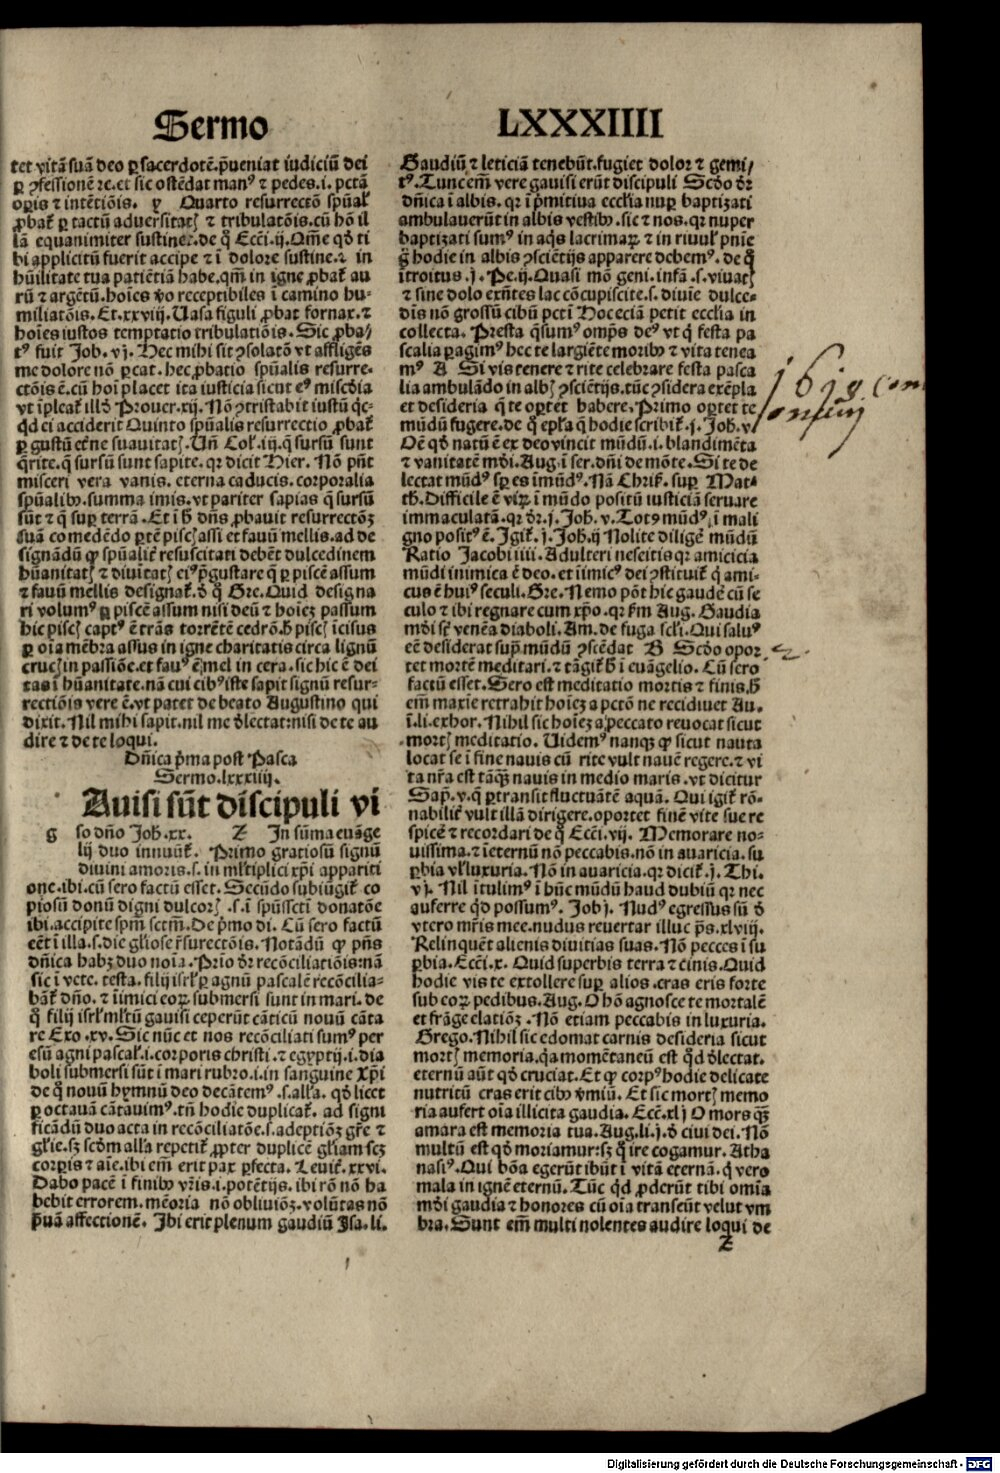 Sermo
LXXXIIII
tet vitā suā deo ꝑ sacerdotē. p̄ueniat iudiciū dei
ꝑ ꝯfessionē ⁊c. et sic ostēdat manꝰ ⁊ pedes .i. pctā
oꝑis ⁊ intētiōis. y Quarto resurrectō spūal̕
ꝓbat̕ ꝑ tactū aduersitatꝭ ⁊ tribulatōis. cū hō il
lā equanimiter sustinet. de q̊ Ecc̄i. ij. Om̄e qd̕ ti
bi applicitū fuerit accipe ⁊ ī dolore sustine. ⁊ in
hūilitate tua patiētiā habe. qm̄ in igne ꝓbat̕ au
rū ⁊ argētū. hoīes v̕o receptibiles ī camino hu-
miliatōis. Et .xxviij. Uasa figuli ꝓbat fornax. ⁊
hoīes iustos temptatio tribulatiōis. Sic ꝓba/
tꝰ fuit Job. vj. Hec mihi sit ꝯsolatō vt affligēs
me dolore nō ꝑcat. hec ꝓbatio spūalis resurre-
ctōis ē. cū hoī placet ita iusticia sicut eꝰ miscd̕ia
vt īpleat̕ illd̕ Prouer. xij. Nō ꝯtristabit iustū qc̄-
qd̕ ei acciderit Quinto spūalis resurrectio ꝓbat̕
ꝑ gustū et̕ne suauitatꝭ. Un̄ Col̕. iij. q̄ sursū sunt
q̄rite. q̄ sursū sunt sapite. qr dicit Hier. Nō pn̄t
misceri vera vanis. eterna caducis. corporalia
spūalibꝰ. summa imis. vt pariter sapias q̄ sursū
sūt ⁊ q̄ suꝑ terrā. Et ī h̕ dn̄s ꝓbauit resurrectōꝫ
suā comedēdo ꝑtē piscꝭ assi et fauū mellis. ad de
signādū ꝙ spūalit̕ resuscitati debēt dulcedinem
hūanitatꝭ ⁊ diuītatꝭ eiꝰ p̄gustare q̄ ꝑ piscē assum
⁊ fauū mellis designat̕. d̕ q̊ Gre. Quid designa
ri volumꝰ ꝑ piscē assum nisi deū ⁊ hoīeꝫ passum
hic piscꝭ captꝰ ē trās torrētē cedrō. h̕ piscꝭ īcisus
ꝑ oīa mēbra assus in igne charitatis circa lignū
crucꝭ in passiōe. et fauꝰ ē mel in cera. sic hic ē dei
tas ī hūanitate. nā cui cibꝰ iste sapit signū resur-
rectiōis vere ē. vt patet de beato Augustino qui
dixit. Nil mihi sapit. nil me d̕lectat: nisi de te au
dire ⁊ de te loqui.
Dn̄ica p̄ma post Pasca
Sermo .lxxxiiij.
Auisi sūt discipuli vi
g so dn̄o Joh. xx. Z In sūma euāge
lij duo innuūt̕. Primo gratiosū signū
diuini amoris. s. in ml̕tiplici xp̄i appariti
one. ibi. cū sero factū esset. Secūdo subiūgit̕ co
piosū donū digni dulcorꝭ. s. ī spūssct̄i donatōe
ibi. accipite spm̄ sctm̄. De p̄mo di. Cū sero factū
eēt ī illa. s. die gl̕iose r̄surectōis. Notādū ꝙ pn̄s
dn̄ica habꝫ duo noīa. Prīo dr̄ recōciliatiōis: nā
sic ī vete. testa. filij isrl̕ ꝑ agnū pascalē recōcilia-
bāt̕ dn̄o. ⁊ inimici eoꝝ submersi sunt in mari. de
q̊ filij isrl̕ ml̕tū gauisi ceperūt cāticū nouū cāta
re Exo. xv. Sic nūc et nos recōciliati sumꝰ per
esū agni pascal̕. i. corporis christi. ⁊ egyptij. i. dia
boli submersi sūt ī mari rubro. i. in sanguine Xp̄i
de q̊ nouū hymnū deo decātemꝰ. s. all̕a. qd̕ licet
ꝑ octauā cātauimꝰ. tn̄ hodie duplicat̕. ad signi
ficādū duo acta in recōciliatōe. s. adeptiōꝫ gr̄e ⁊
gl̕ie. sꝫ scd̕m all̕a repetit̕ ꝓpter duplicē gl̕iam sꝫ
corꝑis ⁊ aīe. ibi em̄ erit pax ꝑfecta. Leuit̕. xxvi.
Dabo pacē ī finibꝰ vr̄is. i. potētijs. ibi rō nō ha
bebit errorem. mēoria nō obliuiōꝫ. volūtas nō
p̄uā affectionē. Ibi erit plenum gaudiū Isa. li.
Gaudiū ⁊ leticiā tenebūt. fugiet dolor ⁊ gemi/
tꝰ. Tunc em̄ vere gauisi erūt discipuli Scd̕o dr̄
dn̄ica ī albis. qr ī p̄mitiua eccl̕ia nuꝑ baptizati
ambulauerūt in albis vestibꝰ. sic ⁊ nos. qr nuper
baptizati sumꝰ in aq̄s lacrimaꝝ ⁊ in riuul̕ pn̄ie
g̊ hodie in albis ꝯsciētijs apparere debemꝰ. de q̊
ītroitus. j. Pe. ij. Quasi mō geni. infā. s. viuatꝭ
⁊ sine dolo exn̄tes lac cōcupiscite. s. diuīe dulce-
dīs nō grossū cibū pcti Hoc eciā petit eccl̕ia in
collecta. Presta q̄sumꝰ omp̄s deꝰ vt q̄ festa pa
scalia ꝑagimꝰ hec te largiēte moribꝰ ⁊ vita tenea
mꝰ A Si vis tenere ⁊ rite celebrare festa pasca
lia ambulādo in albꝭ ꝯsciētijs. tūc ꝯsidera exēpla
et desideria q̄ te oꝑtet habere. Primo oꝑtet te
mūdū fugere. de q̊ epl̕a q̄ hodie scribit̕. j. Joh. v.
Oē qd̕ natū ē ex deo vincit mūdū. i. blandimēta
⁊ vanitatē mūdi. Aug. ī ser. dn̄i de mōte. Si te de
lectat mūdꝰ sꝑ es īmūdꝰ. Nā Chrisꝰ. suꝑ Mat-
th. Difficile ē viꝝ ī mūdo positū iusticiā seruare
immaculatā. qr dr̄. j. Joh. v. Totꝰ mūdꝰ ī mali
gno positꝰ ē. Igit̕. j. Joh. ij Nolite diligē mūdū
Ratio Jacobi iiii. Adulteri nescitis qr amicicia
mūdi inimica ē deo. et īimicꝰ dei ꝯstituit̕ q̄ ami-
cus ē huiꝰ seculi. Gre. Nemo pōt hic gaudē cū se
culo ⁊ ibi regnare cum xp̄o. qr km̄ Aug. Gaudia
mūdi sūt venēa diaboli. Am. de fuga scl̕i. Qui saluꝰ
eē desiderat supͣ mūdū ꝯscēdat B Scd̕o opor
tet mortē meditari. ⁊ tāgit̕ h̕ ī euāgelio. Cū sero
factū esset. Sero est meditatio mortis ⁊ finis. h̕
em̄ maxīe retrahit hoīeꝫ a pctō ne recidiuet Au.
ī. li. exhor. Nihil sic hoīeꝫ a peccato reuocat sicut
mortꝭ meditatio. Uidemꝰ nanqꝫ ꝙ sicut nauta
locat se ī fine nauis cū rite vult nauē regere. ⁊ vi
ta nr̄a est tāqꝫ nauis in medio maris. vt dicitur
Sap̄. v. q̄ ꝑtransit fluctuātē aquā. Qui igit̕ rō-
nabilit̕ vult illā dirigere. oportet finē vite sue re
spicē ⁊ recordari de q̊ Ecc̄i. vij. Memorare no-
uissima. ⁊ īeternū nō peccabis. nō in auaricia. su
ꝑbia vl̕ luxuria. Nō in auaricia. qr dicit̕. j. Thi.
vj. Nil ītulimꝰ ī hūc mūdū haud dubiū qr nec
auferre qd̕ possumꝰ. Job j. Nudꝰ egressus sū d̕
vtero mr̄is mee. nudus reuertar illuc p̄s. xlviij.
Relinquēt alienis diuitias suas. Nō pecces ī su
ꝑbia. Ecc̄i. x. Quid superbis terra ⁊ cinis. Quid
hodie vis te extollere suꝑ alios. cras eris forte
sub eoꝝ pedibus. Aug. O hō agnosce te mortalē
et frāge elatiōꝫ. Nō etiam peccabis in luxuria.
Grego. Nihil sic edomat carnis desideria sicut
mortꝭ memoria. qa momētaneū est qd̕ d̕lectat.
eternū aūt qd̕ cruciat. Et ꝙ corpꝰ hodie delicate
nutritū cras erit cibꝰ v̕miū. Et sic mortꝭ memo
ria aufert oīa illicita gaudia. Ecc̄. xlj O mors qꝫ
amara est memoria tua. Aug. li. j. d̕ ciui dei. Nō
multū est qd̕ moriamur: sꝫ q̊ ire cogamur. Atha
nasiꝰ. Qui bōa egerūt ibūt ī vitā eternā. q̄ vero
mala in ignē eternū. Tūc qd̕ ꝓderūt tibi omīa
mūdi gaudia ⁊ honores cū oīa transeūt velut vm
bra. Sunt em̄ multi nolentes audire loqui de
Z
Digitalisierung gefördert durch die Deutsche Forschungsgemeinschaft - DFG